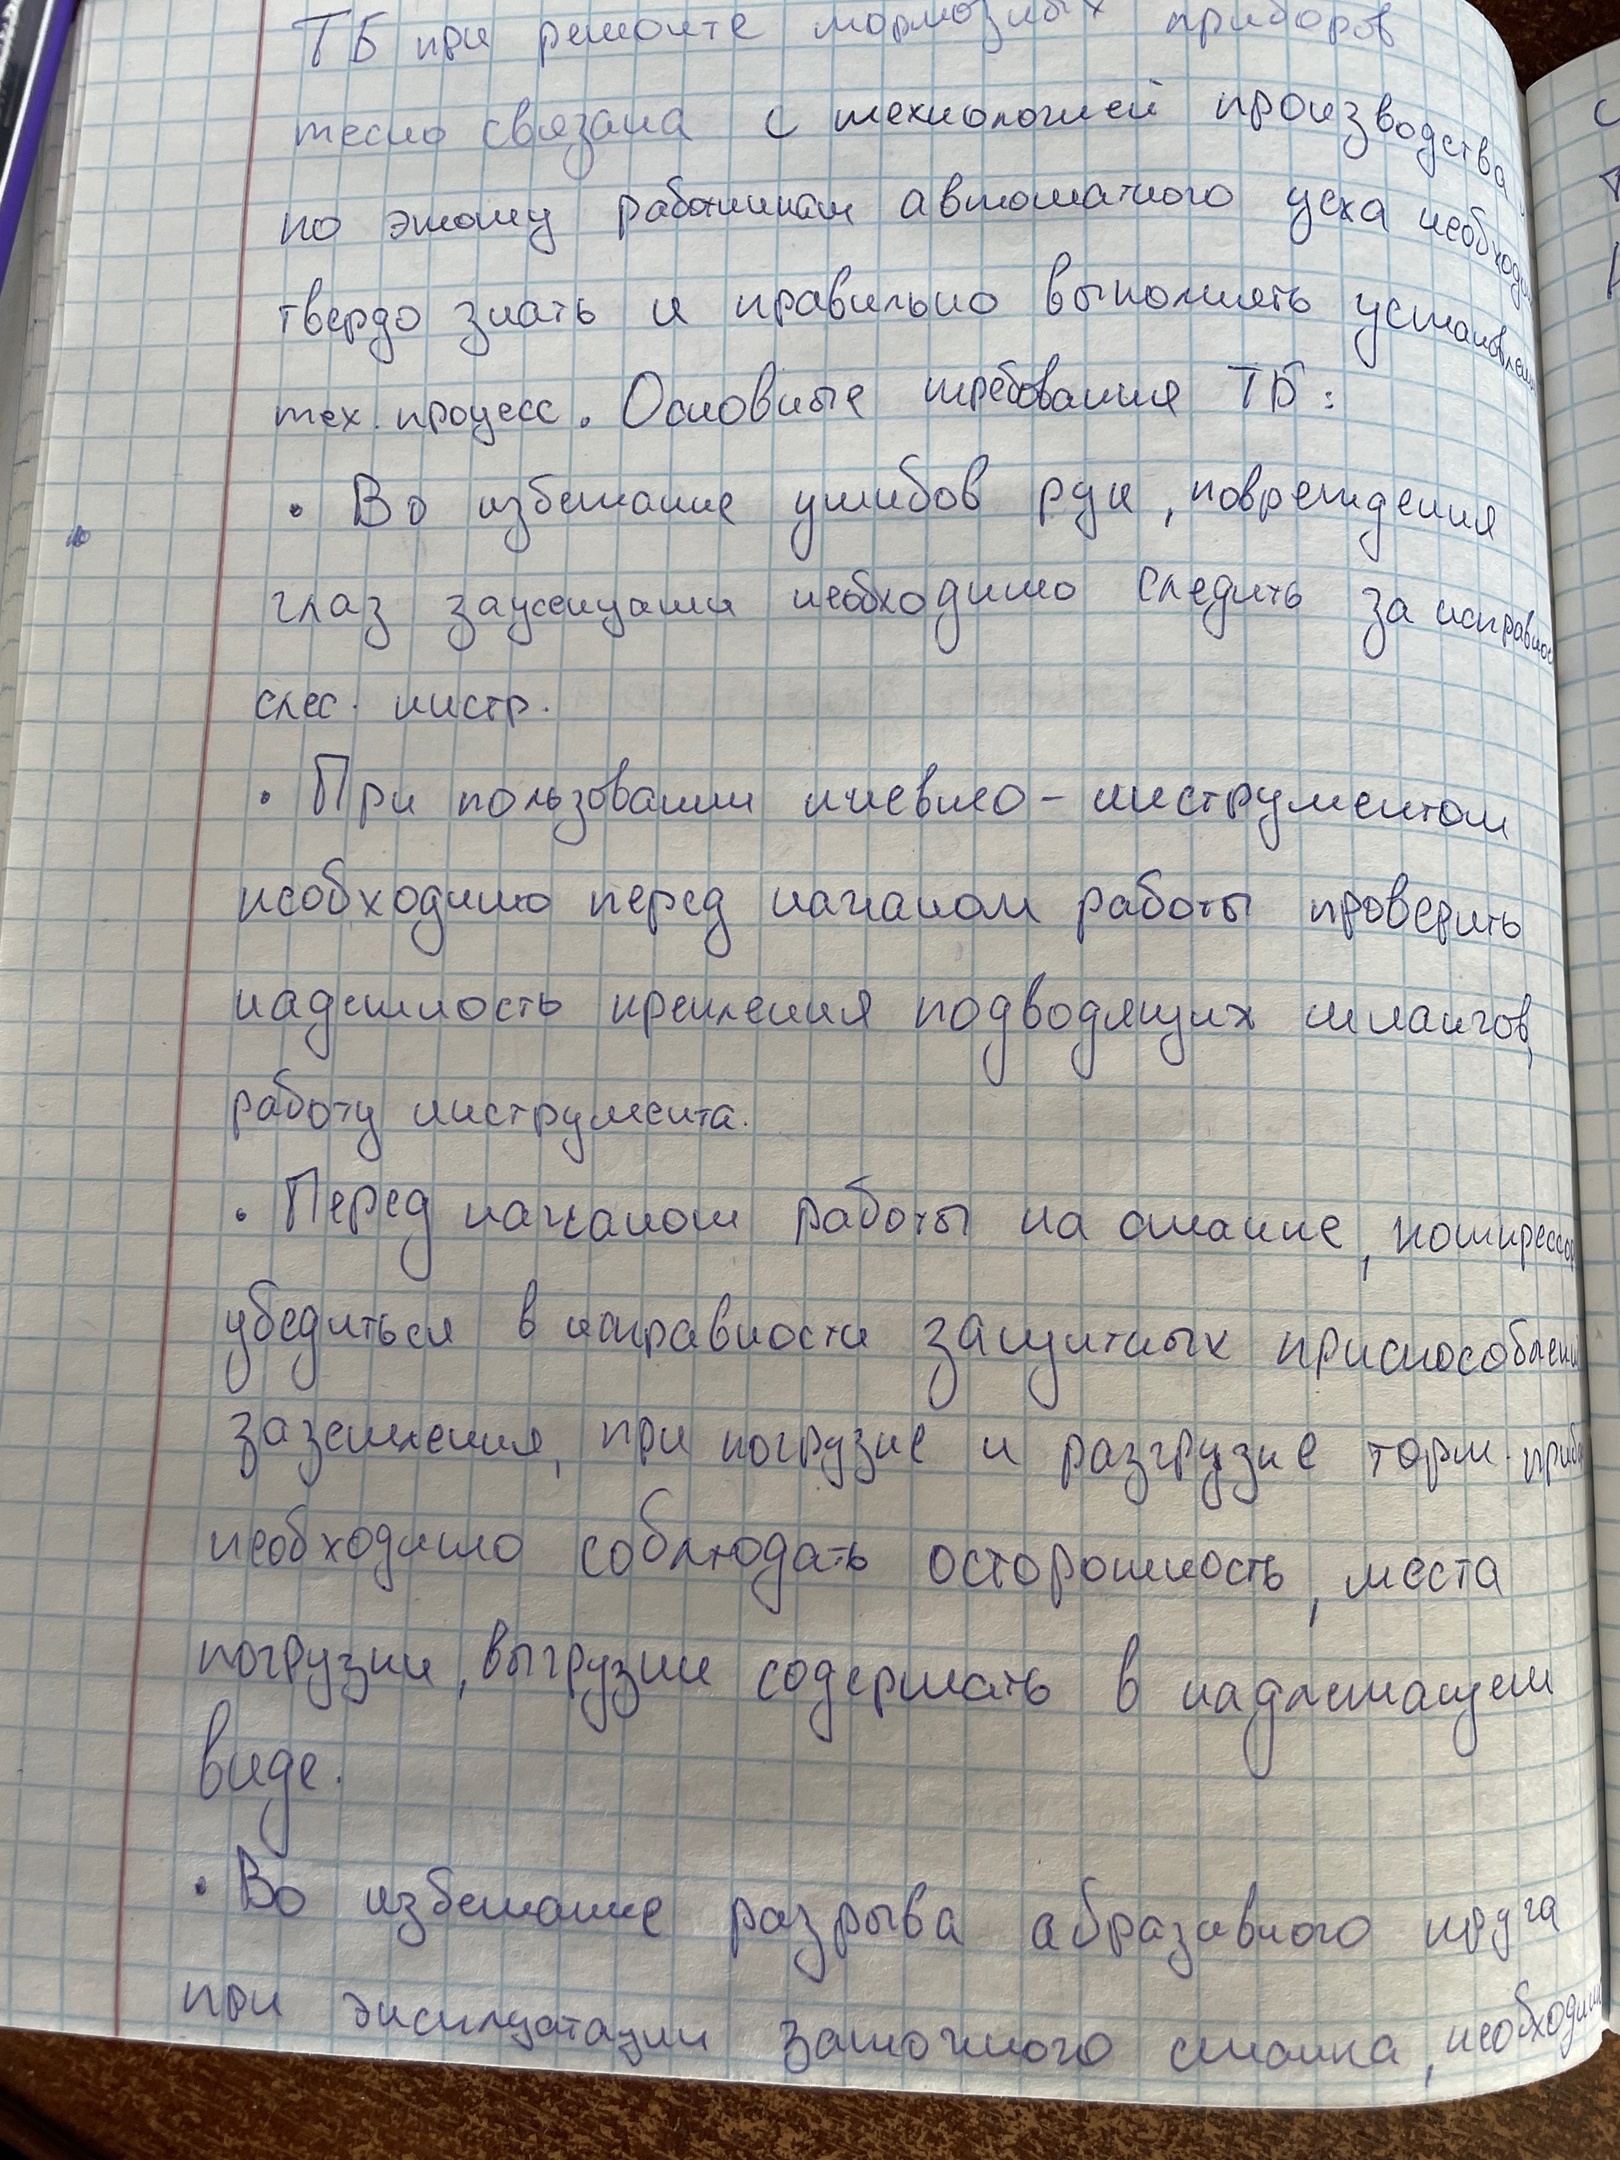 ТБ при ремонте тормозных приборов
тесно связана с технологией производства,
по этому работникам автоматного цеха необходи
твердо знать и правильно выполнять установлен
тех. процесс. Основные требования ТБ:
• Во избежание ушибов рук, повреждения
глаз заусенцами необходимо следить за исправнос
слес. инстр.
• При пользовании пневмо-инструментом
необходимо перед началом работы проверить
надежность крепления подводящих шлангов,
работу инструмента.
• Перед началом работы на станке, компрессор
убедиться в исправности защитных приспособлени
заземления, при погрузке и разгрузке торм. приб
необходимо соблюдать осторожность, места
погрузки, выгрузки содержать в надлежащем
виде.
• Во избежание разрыва абразивного круга
при эксплуатации заточного станка, необходим